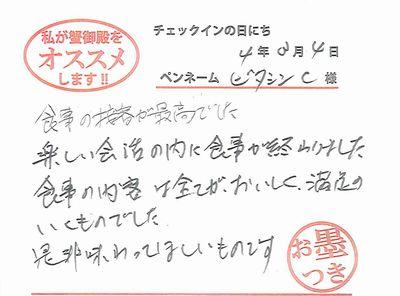 私が蟹御殿を
オススメ
します!!
チェックインの日にち
4年8月4日
ペンネーム ビタシンC 様
食事の接客が最高でした
楽しい会話の内に食事が終わりました
食事の内容は全てが、おいしく、満足の
いくものでした
是非味わってほしいものです
お墨
つき